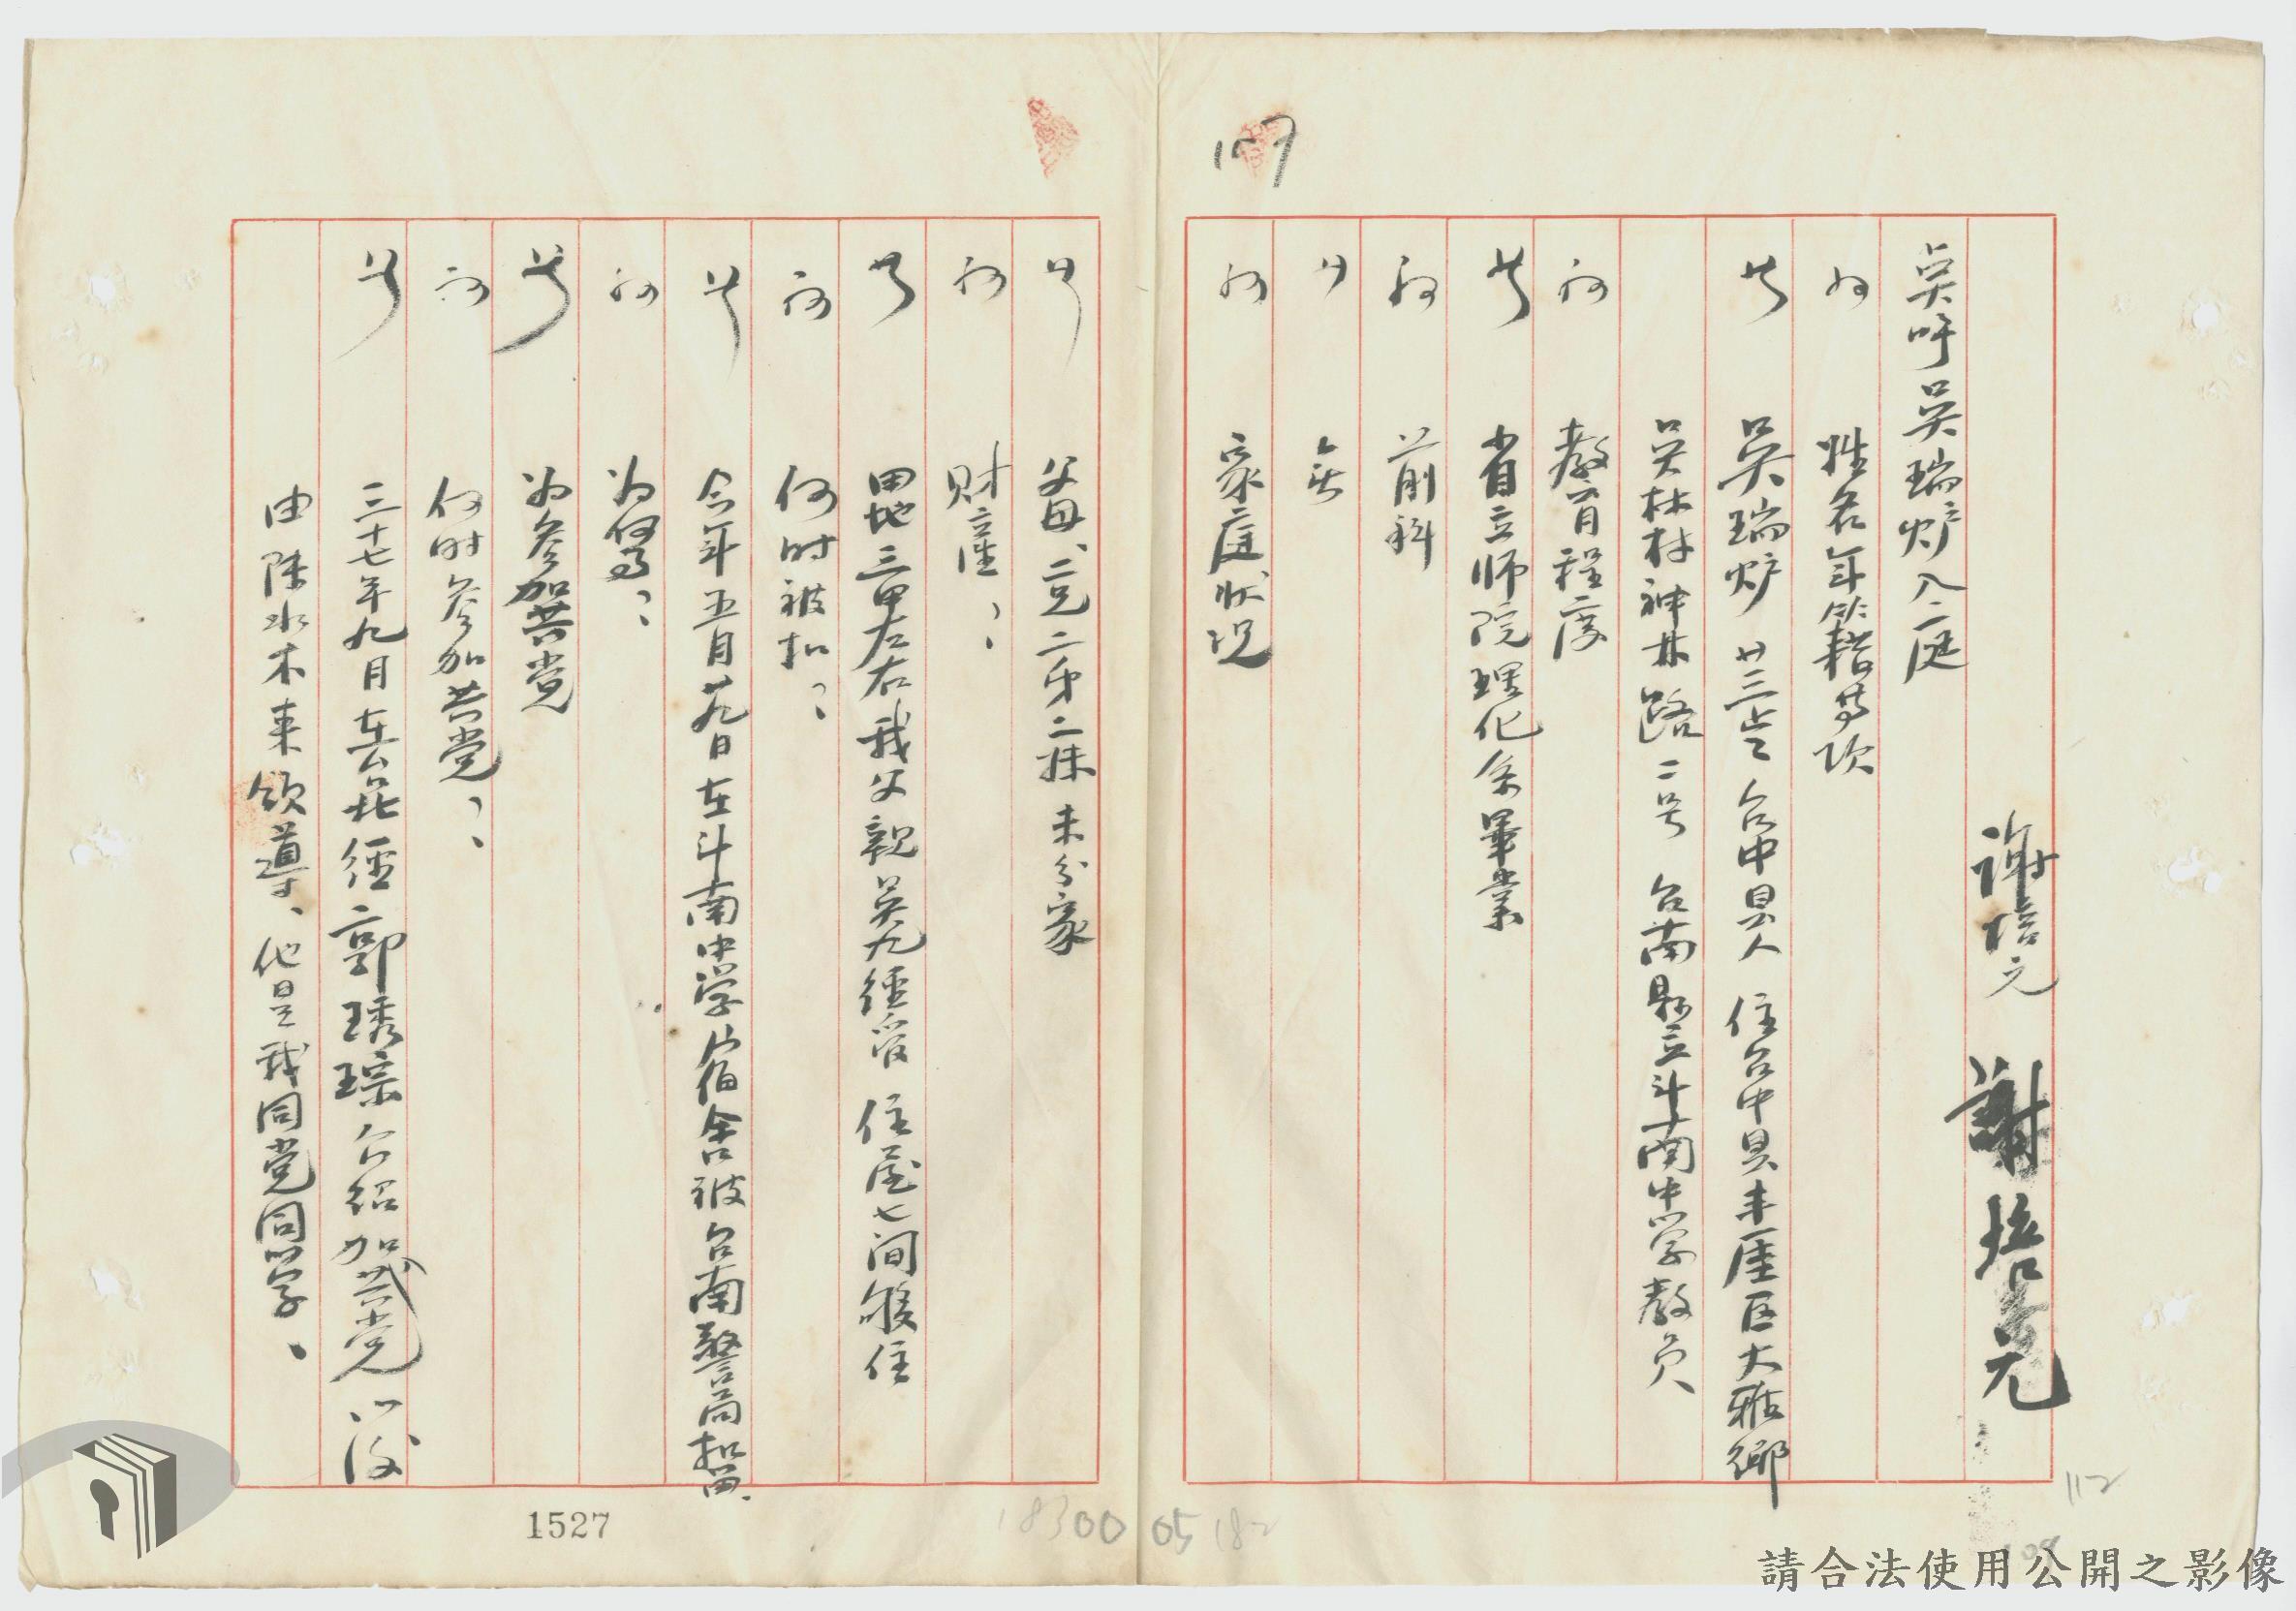 107
謝培元 謝培元
點呼吳瑞炉入庭
問 姓名年籍等項
答 吳瑞炉 廿三歲 台中县人 住台中县丰原区大雅鄉
員林村神林路二号 台南縣立斗南中学教員
問 教育程度
答 省立师院理化系畢業
問 前科
答 無
問 家庭狀況
答 父母、二兄二弟二妹未分家
問 財產？
答 田地三甲左右我父親吳九經管 住屋七间够住
問 何时被扣？
答 今年五月廿九日在斗南中学宿舍被台南警局扣留.
問 为何事？
答 为參加共党
問 何时參加共党？
答 三十七年九月在台北經郭琇琮介绍加入共党 以後
由陳水木来领導、他是我同党同学、
1527
18300 05182
112
請合法使用公開之影像